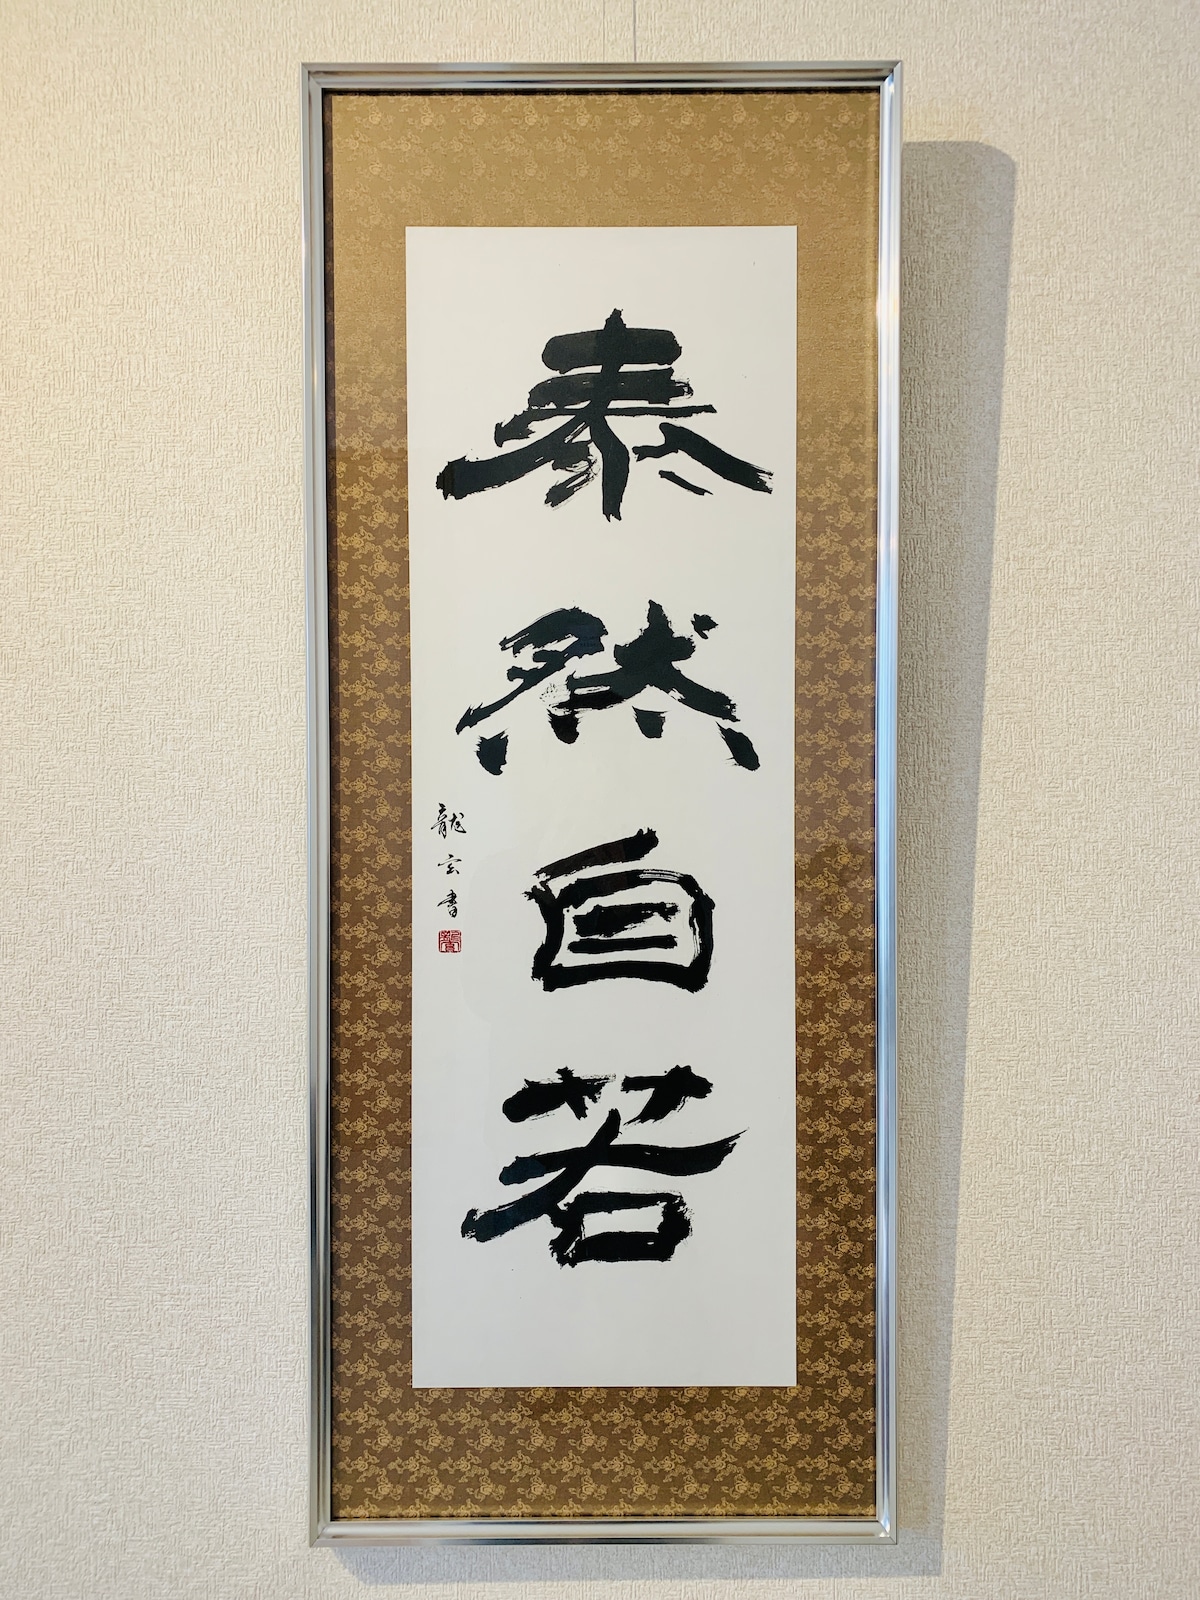 泰然自若
龍玄書